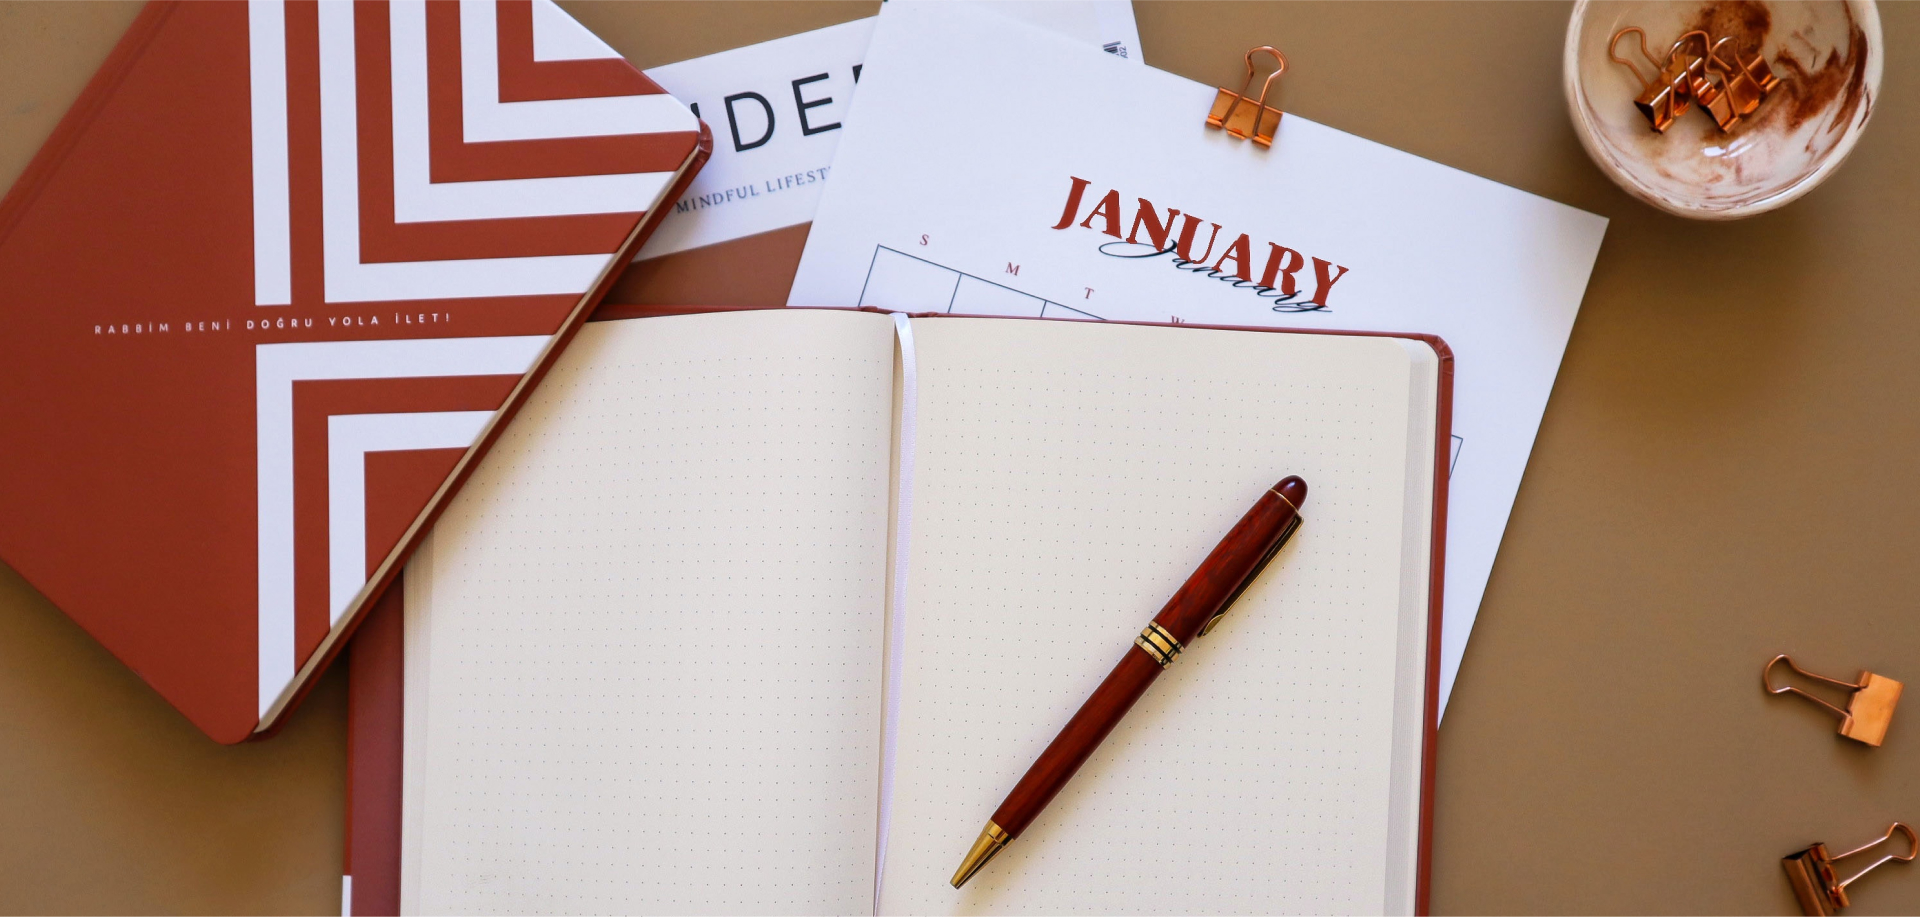 RABBİM BENİ DOĞRU YOLA İLET!
MINDFUL
JANUARY
January
S
M
T
W